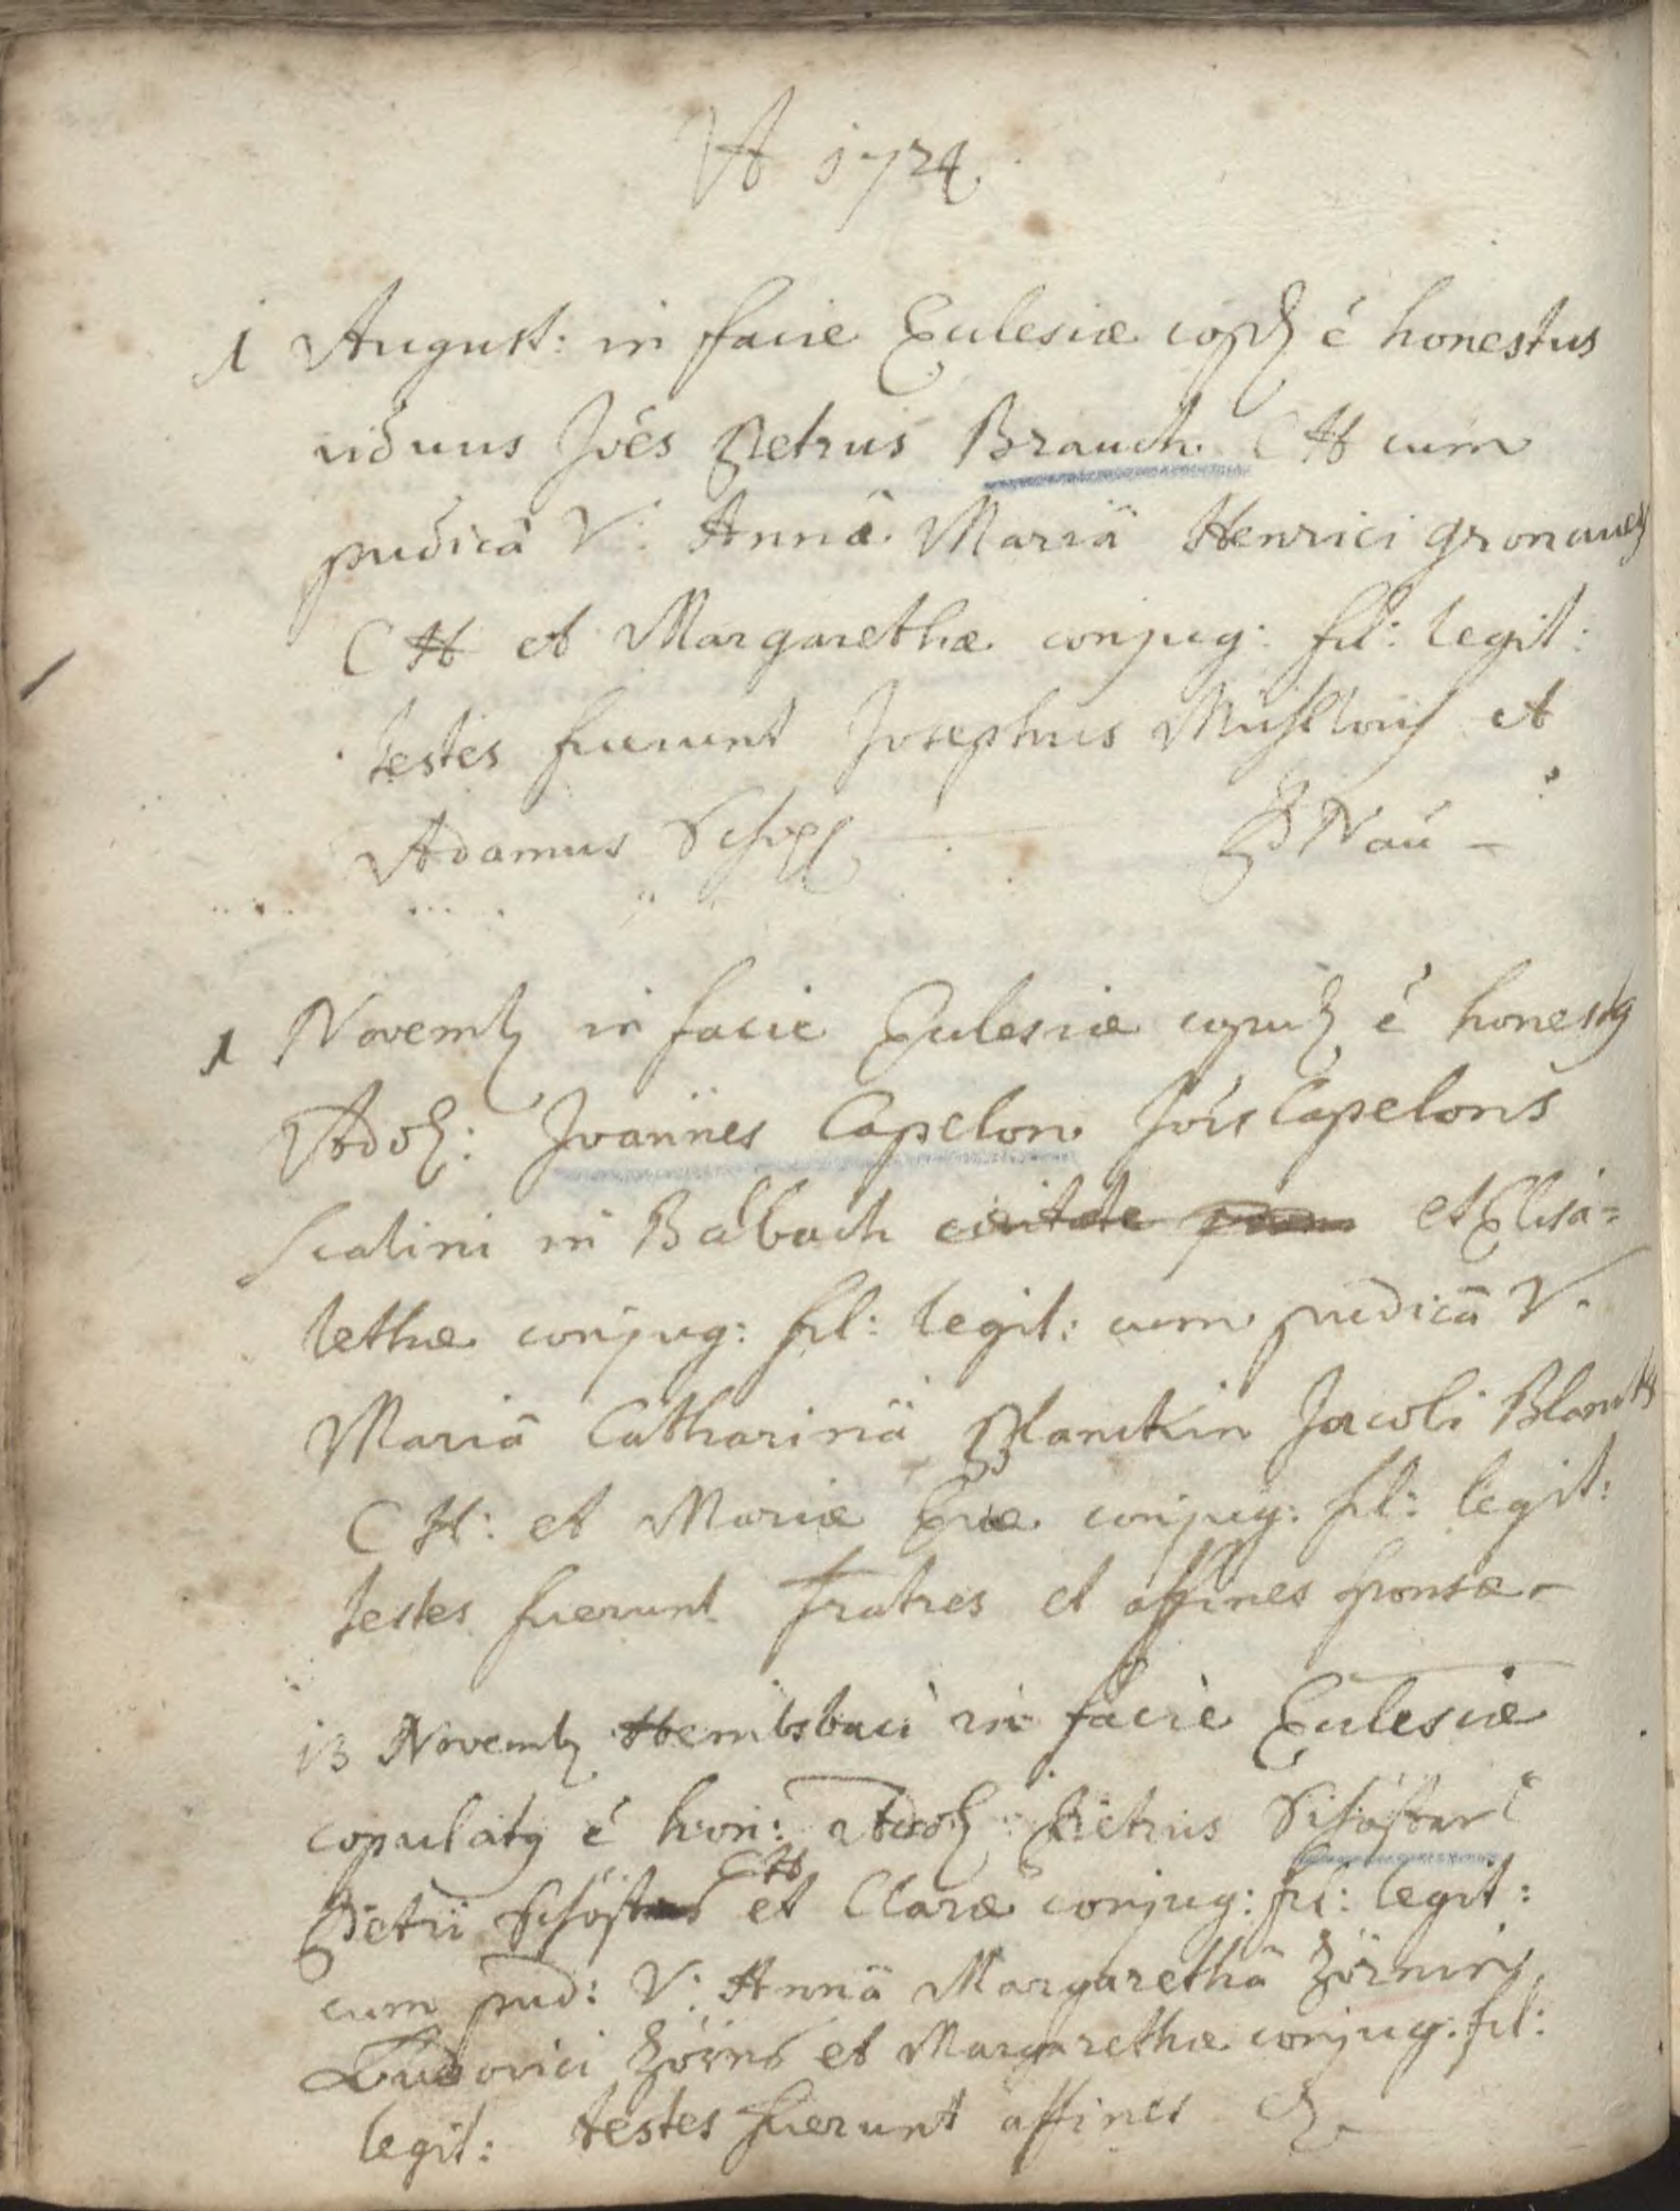 A 1724.
1 August: in facie Ecclesiæ cop é honestus
viduus Joés Petrus Brauch C H cum
pudicâ V: Annâ Mariâ Henrici
C H et Margarethæ conjug: fil: legit:
testes fuerunt Josephus et
Adamus P Nau –
1 Novemb in facie Ecclesiæ copul é honestg
Adol: Joannes Capelon Jois Capelons
Scabini in Balbach civitate et Elisa=
bethæ conjug: fil: legit: cum pudicâ V.
Mariâ Catharinâ Blanckin Jacobi Blanck
C H: et Mariæ Evæ conjug: fil: legit:
testes fuerunt fratres et affines sponsæ –
13 Novemb Hembsbaci in facie Ecclesiæ
copulatg é hon: Adol Petrus
Petri CH et Claræ conjug: fil: legit:
cum pud: V: Annâ Margarethâ Zörnin,
Ludovici Zörns et Margarethæ conjug: fil:
legit: testes fuerunt affines